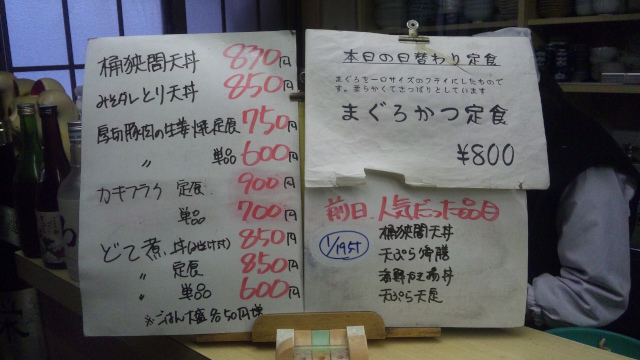 桶狭間天丼 870円
みそダレとり天丼 850円
厚切豚肉の生姜焼定食 750円
〃 単品 600円
カキフライ 定食 900円
単品 700円
どて煮 丼(みそ汁付) 850円
〃 定食 850円
〃 単品 600円
※ごはん大盛各50円増
本日の日替わり定食
まぐろを一口サイズのフライにしたもので
す。柔らかくてさっぱりとしています
まぐろかつ定食
¥800
前日、人気だった品目
桶狭間天丼
天ぷら御膳
天ぷら天定